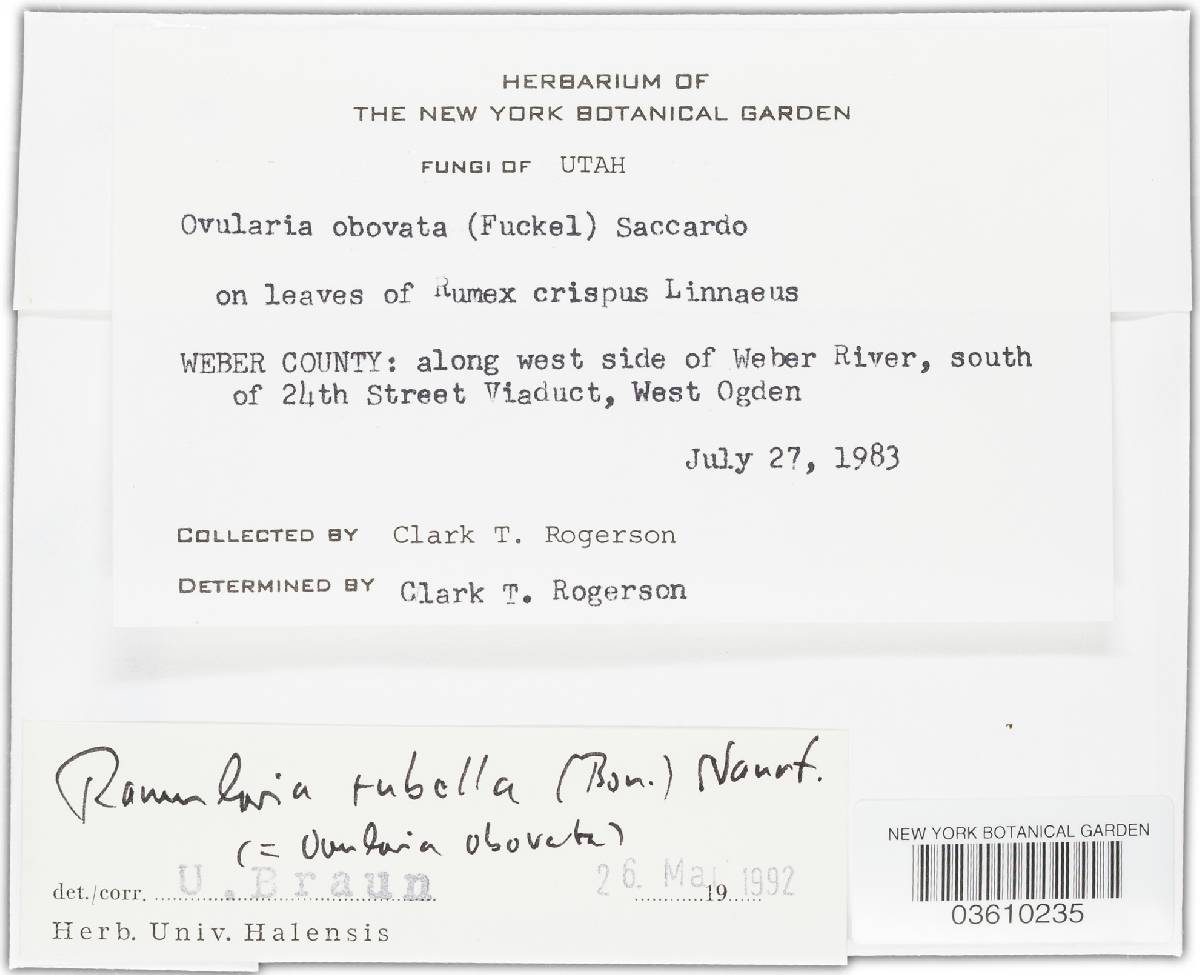 HERBARIUM OF
THE NEW YORK BOTANICAL GARDEN
FUNGI OF UTAH
Ovularia obovata (Fuckel) Saccardo
on leaves of Rumex crispus Linnaeus
WEBER COUNTY: along west side of Weber River, south
of 24th Street Viaduct, West Ogden
July 27, 1983
COLLECTED BY Clark T. Rogerson
DETERMINED BY Clark T. Rogerson
Ramularia rubella (Bon.) Nannf.
(= Ovularia obovata)
det./corr. U. Braun 26. Mai 19 1992
Herb. Univ. Halensis
NEW YORK BOTANICAL GARDEN
03610235